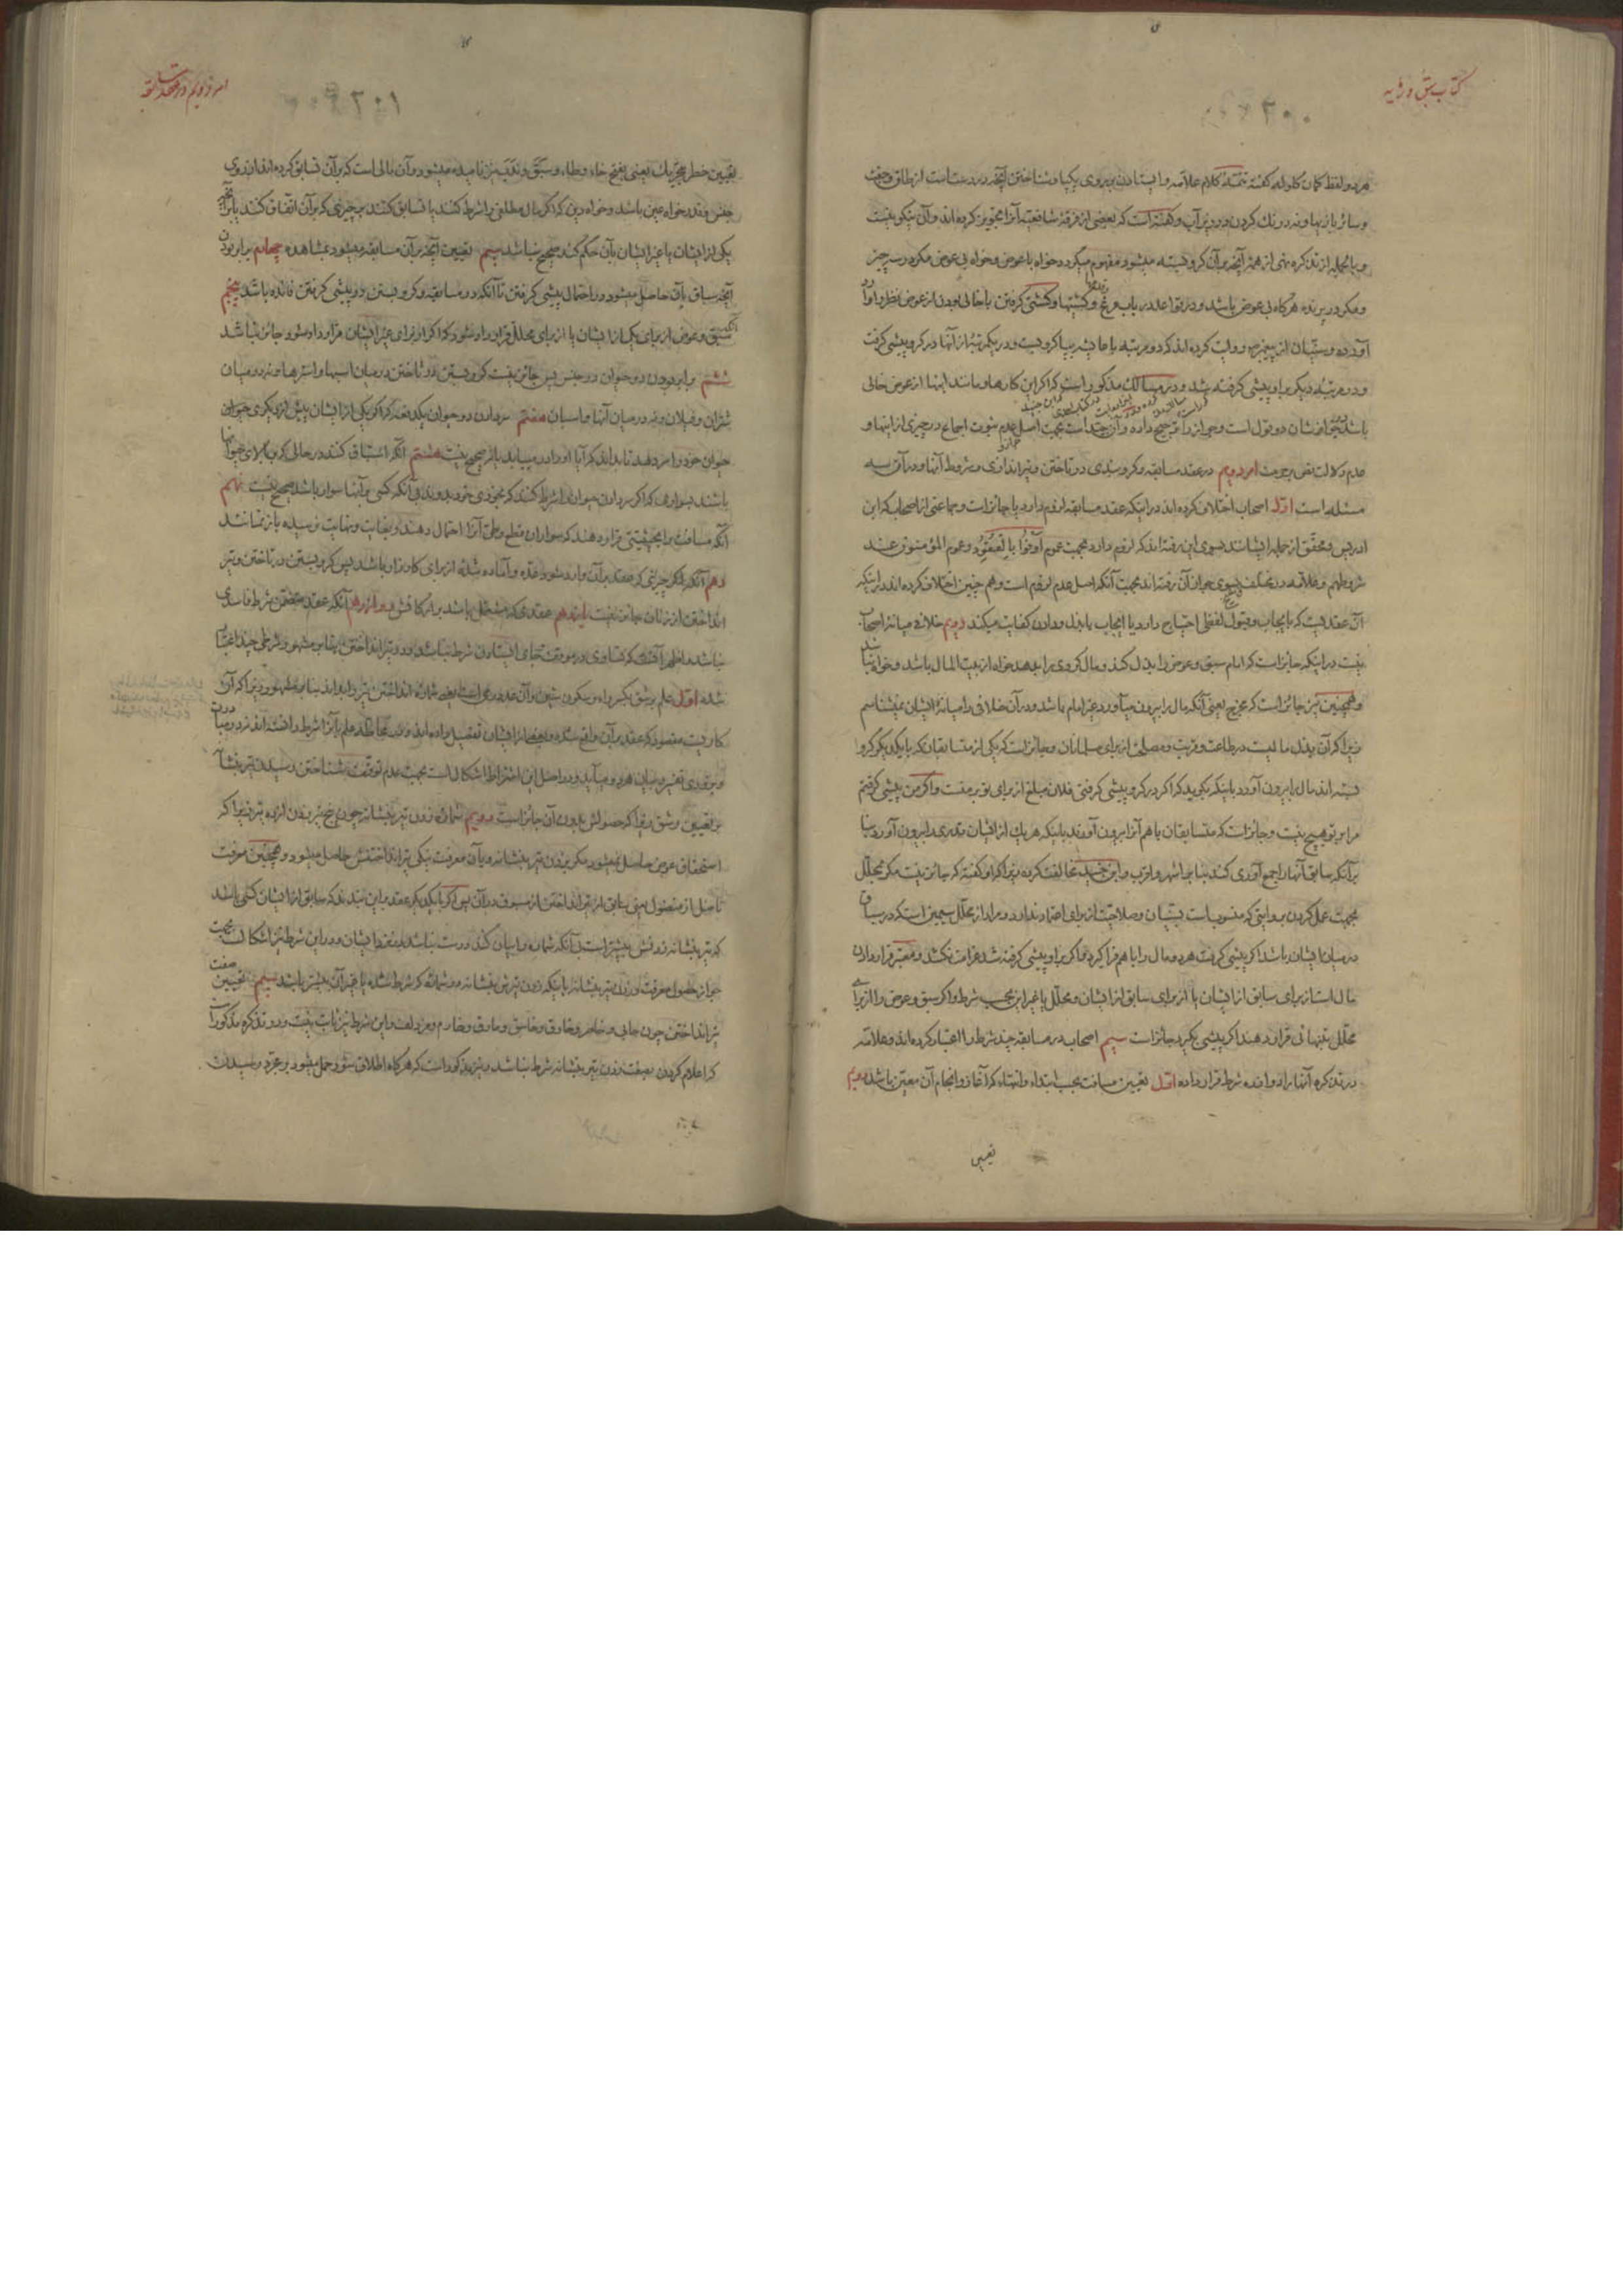 کتاب سبق و رمایه
۲۰۰
هر دو لفظ کمان کلوله کفته تتمة کلام علامه و ایستادن بر روی یکپا و شناختن آنچه در دستست از طاق و جفت
و سائر بازیها و نه درنک کردن در زیر آب و کفته است که بعضی از فرقهٔ شافعیه آنرا تجویز کرده اند و آن نیکو نیست
و بالجمله از تذکره نهی از همهٔ آنچه بر آن کرو بسته میشود مفهوم میکردد خواه با عوض و خواه بی عوض مکر در سه چیز
و مکر در پرنده هرکاه بی عوض باشد و در قواعد در باب مرغ و کشتیها و کشتی کرفتن با خالی بودن از عوض نظر را
آورده و سنّیان از پیغمبر روایت کرده اند که دو مرتبه با عایشه بپا کرو بست و در یکمرتبهٔ از آنها در کرو پیشی کرفت
و در مرتبهٔ دیکر بر او پیشی کرفته شد و در مسالک مذکور است که اکر این کارها و مانند اینها از عوض خالی
باشد در جواز شان دو قول است و جواز را ترجیح داده و آن جیّد است بجهت اصل عدم ثبوت اجماع در چیزی از اینها و
عدم دلالت نص بر حرمت امر دویم در عقد مسابقه و کرو بندی در تاختن و تیر اندازی و شروط آنها و در آن سه
مسئله است اول اصحاب اختلاف کرده اند در اینکه عقد مسابقه لزوم دارد یا جائز است و جماعتی از اصحاب که ابن
ادریس و محقق از جمله ایشانند بسوی این رفته اند که لزوم دارد بجهت عموم اَوفُوا بِالعُقُود و عموم المؤمنون عند
شروطهم و علامه در مختلف بسوی جواز آن رفته اند بجهت آنکه اصل عدم لزوم است و هم چنین اختلاف کرده اند در اینکه
آن عقدیست که بایجاب و قبول لفظی احتیاج دارد یا ایجاب با بذل و دادن کفایت میکند دویم خلاف میانهٔ اصحاب
نیست در اینکه جائز است که امام سبق و عوض را بذل کند و مال کرو را بدهد خواه از بیت المال باشد و خواه نباشد
و همچنین نیز جائز است که مخرج یعنی آنکه مال را بیرون میآورد غیر امام باشد و در آن خلافی را میانهٔ ایشان نمیشناسم
زیرا که آن بذل مالیست در طاعت و قربت و مصلحتی از برای مسلمانان و جائز است که یکی از متسابقان که با یکدیکر کرو
بسته اند مال را بیرون آورد باینکه بکوید که اکر در کرو پیشی کرفتی فلان مبلغ از برای تو بر منست و اکر من پیشی کرفتم
مرا بر تو هیچ نیست و جائز است که متسابقان با هم آنرا بیرون آورند باینکه هریک از ایشان قدری را بیرون آورد بنا
بر آنکه سابق آنها را جمع آوری کند بنا بر اشهر و اقرب و ابن جنید مخالفت کرده زیرا که او کفته که جائز نیست مکر بمحلّل
بجهت عمل کردن بروایتی که منسوب است بسنّیان و صلاحیّت از برای اعتماد ندارد و مراد از محلّل سیمین است که در سباق
در میان ایشان باشد اکر پیشی کرفت هر دو مال را با هم فرا کیرد و اکر بر او پیشی کرفته شد غرامت نکشد و معتبر قرار دادن
مال است از برای سابق از ایشان یا از برای سابق از ایشان و محلّل یا غیر این بحسب شرط و اکر سبق و عوض را از برای
محلّل بتنهائی قرار دهند اکر پیشی بکیرد جائز است سیم اصحاب در مسابقه چند شرط را اعتبار کرده اند و علامه
در تذکره آنها را دوازده شرط قرار داده اوّل تعیین مسافت بحسب ابتداء و انتهاء که آغاز و انجام آن معیّن باشد دویم
تعیین
امر دویم در عقد مسابقه
۲۰۱
تعیین خطر بتحریک یعنی بفتح خاء و طاء و سَبَق و نَدَب نیز نامیده میشود و آن مالی است که بر آن تسابق کرده اند از روی
جنس و قدر خواه عین باشد و خواه دین که اکر مال مطلقی را شرط کنند یا تسابق کنند بر چیزی که بر آن اتفاق کنند یا بر آنچه
یکی از ایشان یا غیر ایشان بآن حکم کند صحیح نباشد سیم تعیین آنچه بر آن مسابقه میشود بمشاهده چهارم برابر بودن
آنچه سباق بآن حاصل میشود در احتمال پیشی کرفتن تا آنکه در مسابقه و کرو بستن در پیشی کرفتن فائده باشد پنجم
آنکه سبق و عوض از برای یکی از ایشان یا از برای محلّل قرار داده شود که اکر از برای غیر ایشان قرار داده شود جائز نباشد
ششم برابر بودن دو حیوان در جنس پس جائز نیست کرو بستن در تاختن در میان اسبها و استرها و نه در میان
شتران و فیلان و نه در میان آنها و اسبان هفتم سر دادن دو حیوان یکدفعه که اکر یکی از ایشان پیش از دیکری حیوان
حیوان خود را سر دهد تا بداند که آیا او را در مییابد یا نه صحیح نیست هشتم آنکه استباق کنند در حالی که بر بالای حیوانها
باشند بسواری که اکر سر دادن حیوان را شرط کنند که بخودی خود بدوند بی آنکه کسی بر آنها سوار باشد صحیح نیست نهم
آنکه مسافت را بحیثیتی قرار دهند که سواران قطع و طی آنرا احتمال دهند و بغایت و نهایت نرسیده باز نمانند
دهم آنکه چیزی که عقد بر آن وارد شود عدّه و آماده شده از برای کارزار باشد پس کرو بستن در تاختن و تیر
انداختن از زنان جائز نیست یازدهم عقدی که مشتمل باشد بر ارکانش دوازدهم آنکه عقد متضمن شرط فاسدی
نباشد و اظهر آنست که تساوی در موقف و جای ایستادن شرط نباشد و در تیر انداختن بنا بر مشهور شرطی چند اعتبار
شده اوّل علم برشق بکسر راء و سکون شین و آن عددی است
کاریست مقصود که عقد بر آن واقع شده و بعضی از ایشان تفصیل داده اند
بر تعیین رشق زیرا که حصولش بدون آن جائز است دویم شمارهٔ زدن تیر بنشانه چون پنج تیر زدن از ده تیر زیرا که
استحقاق عوض حاصل نمیشود مکر بزدن تیر بنشانه و بآن معرفت نیکی تیر انداختنش حاصل میشود و همچنین معرفت
فاضل از مفضول یعنی سابق از تیر انداختن از مسبوق در آن پس اکر با یکدیکر عقد بر این بندند که سابق از ایشان کسی باشد
که تیر بنشانه زدنش بیشتر است بی آنکه شماره را بیان کند درست نباشد نزد ایشان و در این شرط نیز اشکال است بجهت
جواز حصول معرفت زدن تیر بنشانه باینکه زدن تیرش بنشانه در شمارهٔ که شرط شده یا غیر آن بیشتر باشد سیم تعیین صفت
تیر انداختن چون حابی و خاصر و خارق و خاسق و مارق و خارم و مزدلف و این شرط نیز ثابت نیست و در تذکره مذکور است
که اعلام کردن بصفت زدن تیر بنشانه شرط نباشد و نیز مذکور است که هرکاه اطلاق شود حمل میشود بر مجرّد رسیدن